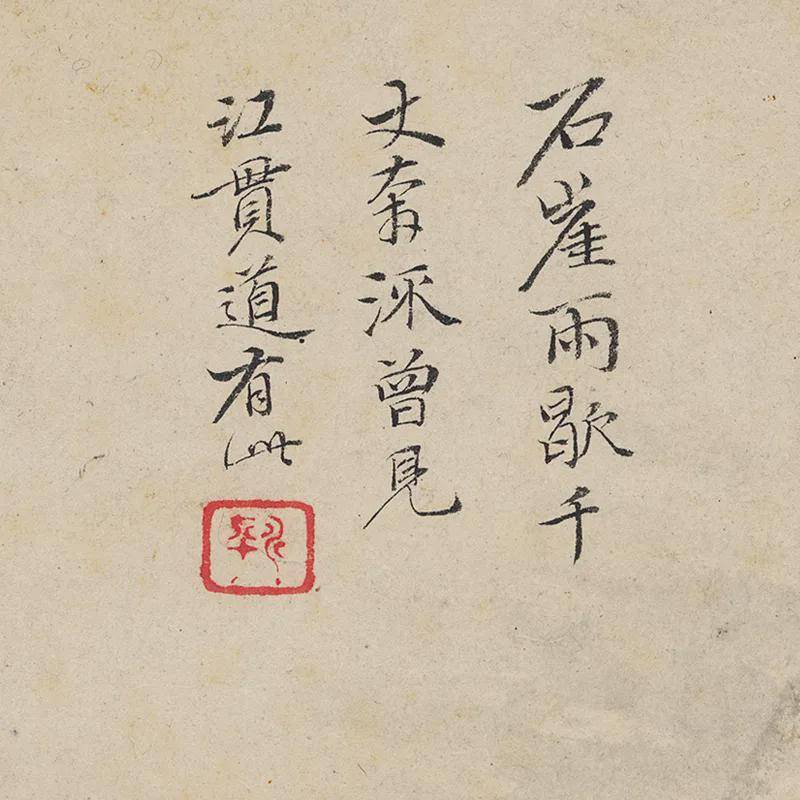 石崖雨歇千
丈奔派曾見
江貫道有此